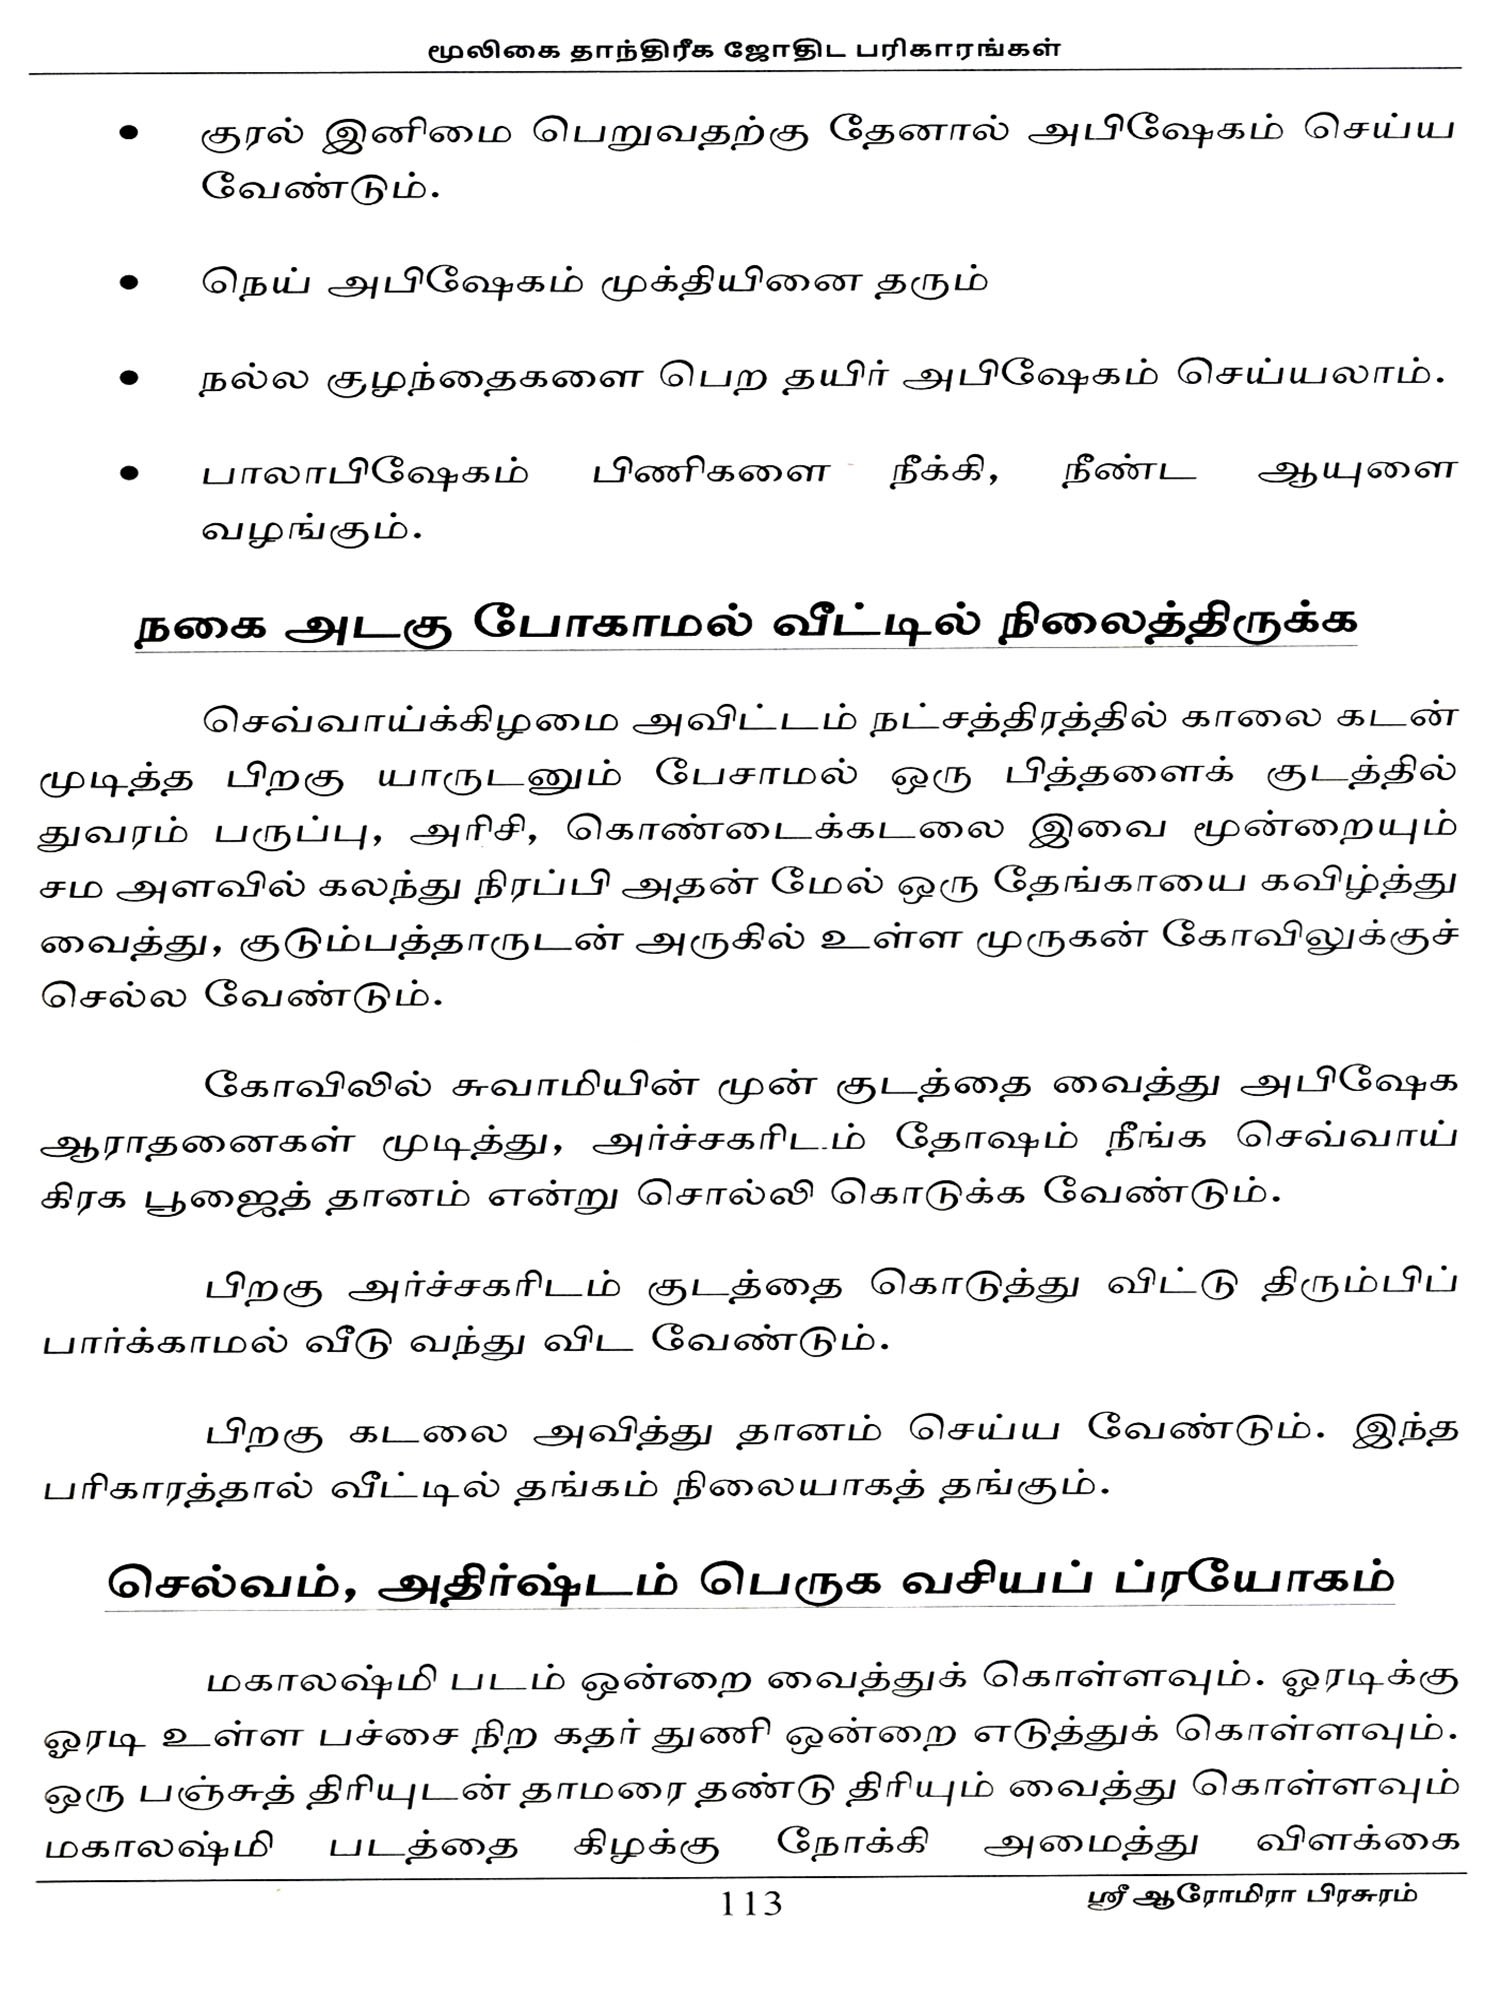 மூலிகை தாந்திரீக ஜோதிட பரிகாரங்கள்
• குரல் இனிமை பெறுவதற்கு தேனால் அபிஷேகம் செய்ய
வேண்டும்.
• நெய் அபிஷேகம் முக்தியினை தரும்
• நல்ல குழந்தைகளை பெற தயிர் அபிஷேகம் செய்யலாம்.
• பாலாபிஷேகம் பிணிகளை நீக்கி, நீண்ட ஆயுளை
வழங்கும்.
நகை அடகு போகாமல் வீட்டில் நிலைத்திருக்க
செவ்வாய்க்கிழமை அவிட்டம் நட்சத்திரத்தில் காலை கடன்
முடித்த பிறகு யாருடனும் பேசாமல் ஒரு பித்தளைக் குடத்தில்
துவரம் பருப்பு, அரிசி, கொண்டைக்கடலை இவை மூன்றையும்
சம அளவில் கலந்து நிரப்பி அதன் மேல் ஒரு தேங்காயை கவிழ்த்து
வைத்து, குடும்பத்தாருடன் அருகில் உள்ள முருகன் கோவிலுக்குச்
செல்ல வேண்டும்.
கோவிலில் சுவாமியின் முன் குடத்தை வைத்து அபிஷேக
ஆராதனைகள் முடித்து, அர்ச்சகரிடம் தோஷம் நீங்க செவ்வாய்
கிரக பூஜைத் தானம் என்று சொல்லி கொடுக்க வேண்டும்.
பிறகு அர்ச்சகரிடம் குடத்தை கொடுத்து விட்டு திரும்பிப்
பார்க்காமல் வீடு வந்து விட வேண்டும்.
பிறகு கடலை அவித்து தானம் செய்ய வேண்டும். இந்த
பரிகாரத்தால் வீட்டில் தங்கம் நிலையாகத் தங்கும்.
செல்வம், அதிர்ஷ்டம் பெருக வசியப் ப்ரயோகம்
மகாலஷ்மி படம் ஒன்றை வைத்துக் கொள்ளவும். ஓரடிக்கு
ஓரடி உள்ள பச்சை நிற கதர் துணி ஒன்றை எடுத்துக் கொள்ளவும்.
ஒரு பஞ்சுத் திரியுடன் தாமரை தண்டு திரியும் வைத்து கொள்ளவும்
மகாலஷ்மி படத்தை கிழக்கு நோக்கி அமைத்து விளக்கை
113
ஸ்ரீ ஆரோமிரா பிரசுரம்